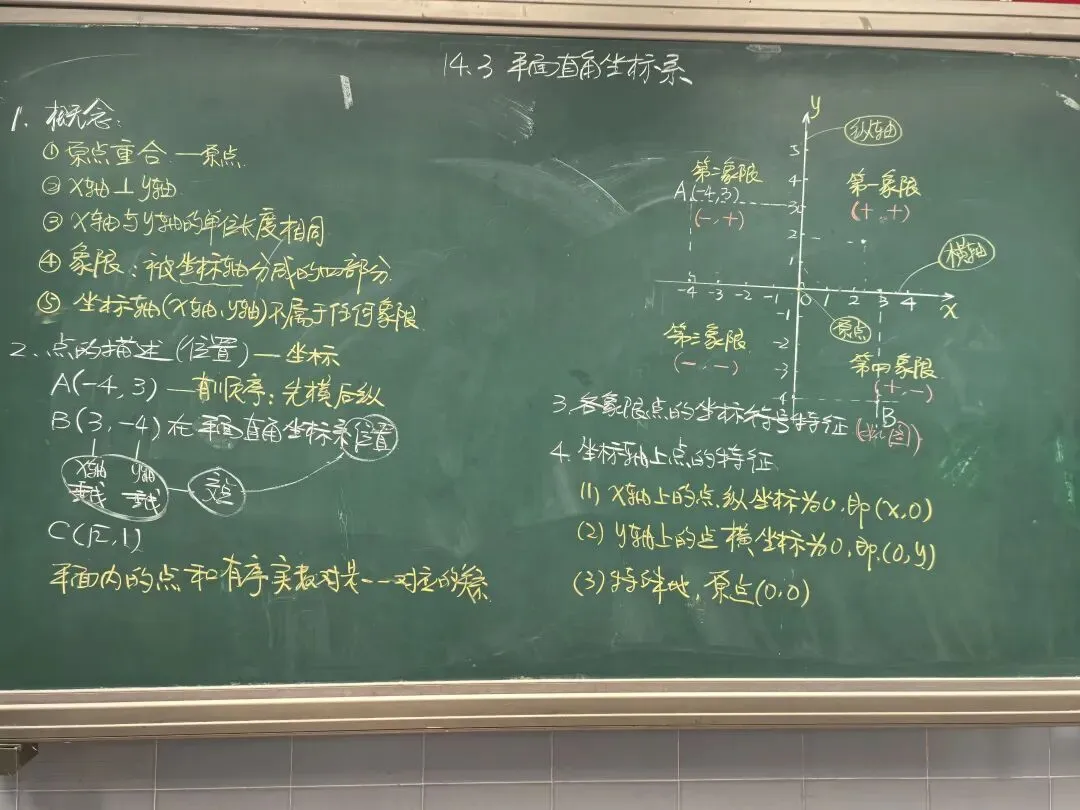 14.3 平面直角坐标系
1. 概念:
① 原点重合 — 原点
② x轴⊥y轴
③ x轴与y轴的单位长度相同
④ 象限：被坐标轴分成的四部分
⑤ 坐标轴(x轴、y轴)不属于任何象限
2. 点的描述(位置) — 坐标
A(-4, 3) — 有顺序：先横后纵
B(3, -4) 在平面直角坐标系位置
x轴 y轴
垂线 垂线 交点
C(√2, 1)
平面内的点和有序实数对是一一对应的关系
y
纵轴
5
第二象限
4
第一象限
A(-4,3)
3
(-, +)
(+, +)
2
横轴
1
-4 -3 -2 -1 0 1 2 3 4
x
-1
原点
第三象限
-2
(-, -)
-3
第四象限
(+, -)
-4
B
3. 各象限点的坐标符号特征 (如图)
4. 坐标轴上点的特征
(1) x轴上的点,纵坐标为0,即(x,0)
(2) y轴上的点横坐标为0,即(0,y)
(3) 特殊地，原点(0,0)